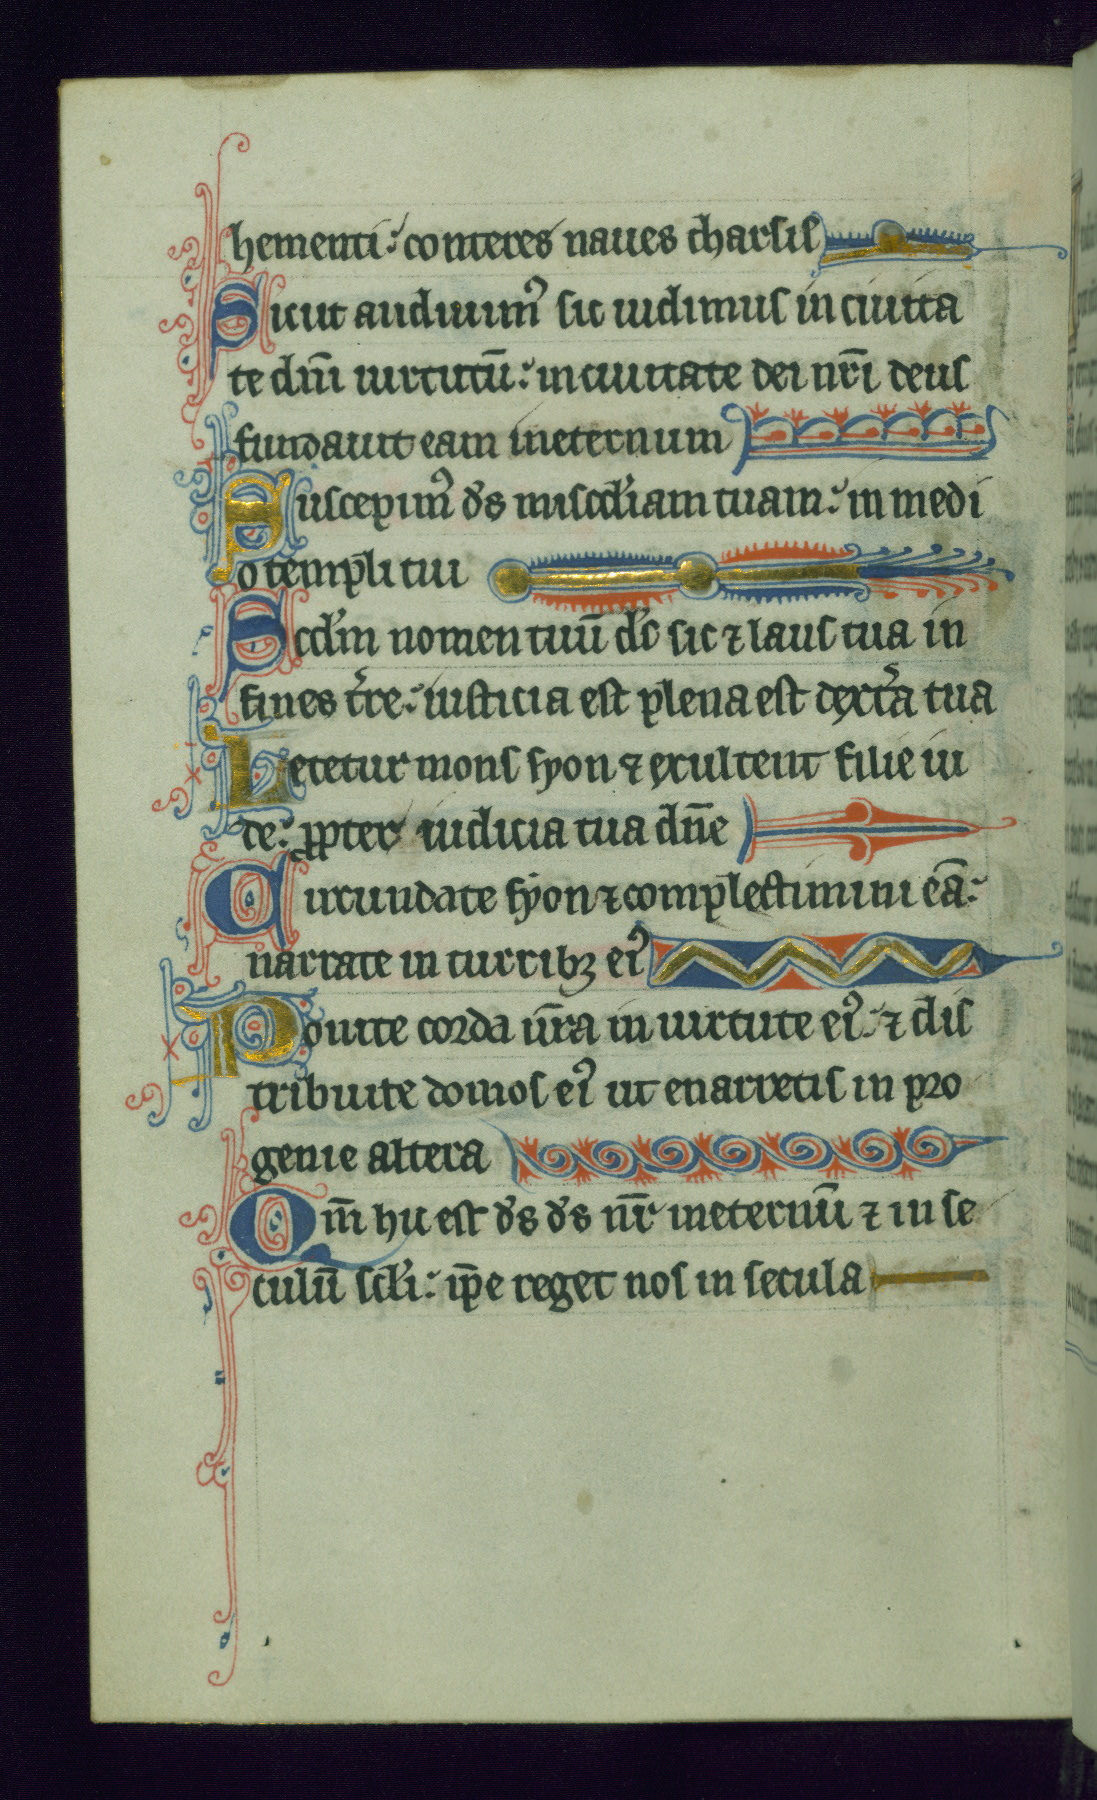 hementi: conteres naues tharsis
Sicut audiuim᷒ sic uidimus in ciuita
te dn̄i uirtutū: in ciuitate dei nr̄i deus
fundauit eam ineternum
Suscepim᷒ d̄s misc̄diam tuam: in medi
o templi tui
Scd̄m nomen tuū d̄s sic ⁊ laus tua in
fines tr̄re: iusticia est plena est dextͣa tua
Letetur mons syon ⁊ exultent filie iu
de: ꝓpter iudicia tua dn̄e
Circundate syon ⁊ complectimini eā:
narrate in turribꝫ ei᷒
Ponite corda ur̄a in uirtute ei᷒: ⁊ dis
tribuite domos ei᷒ ut enarretis in pro
genie altera
Qm̄ hic est d̄s d̄s nr̄ ineternū ⁊ in se
culū scl̄i: ip̄e reget nos in secula